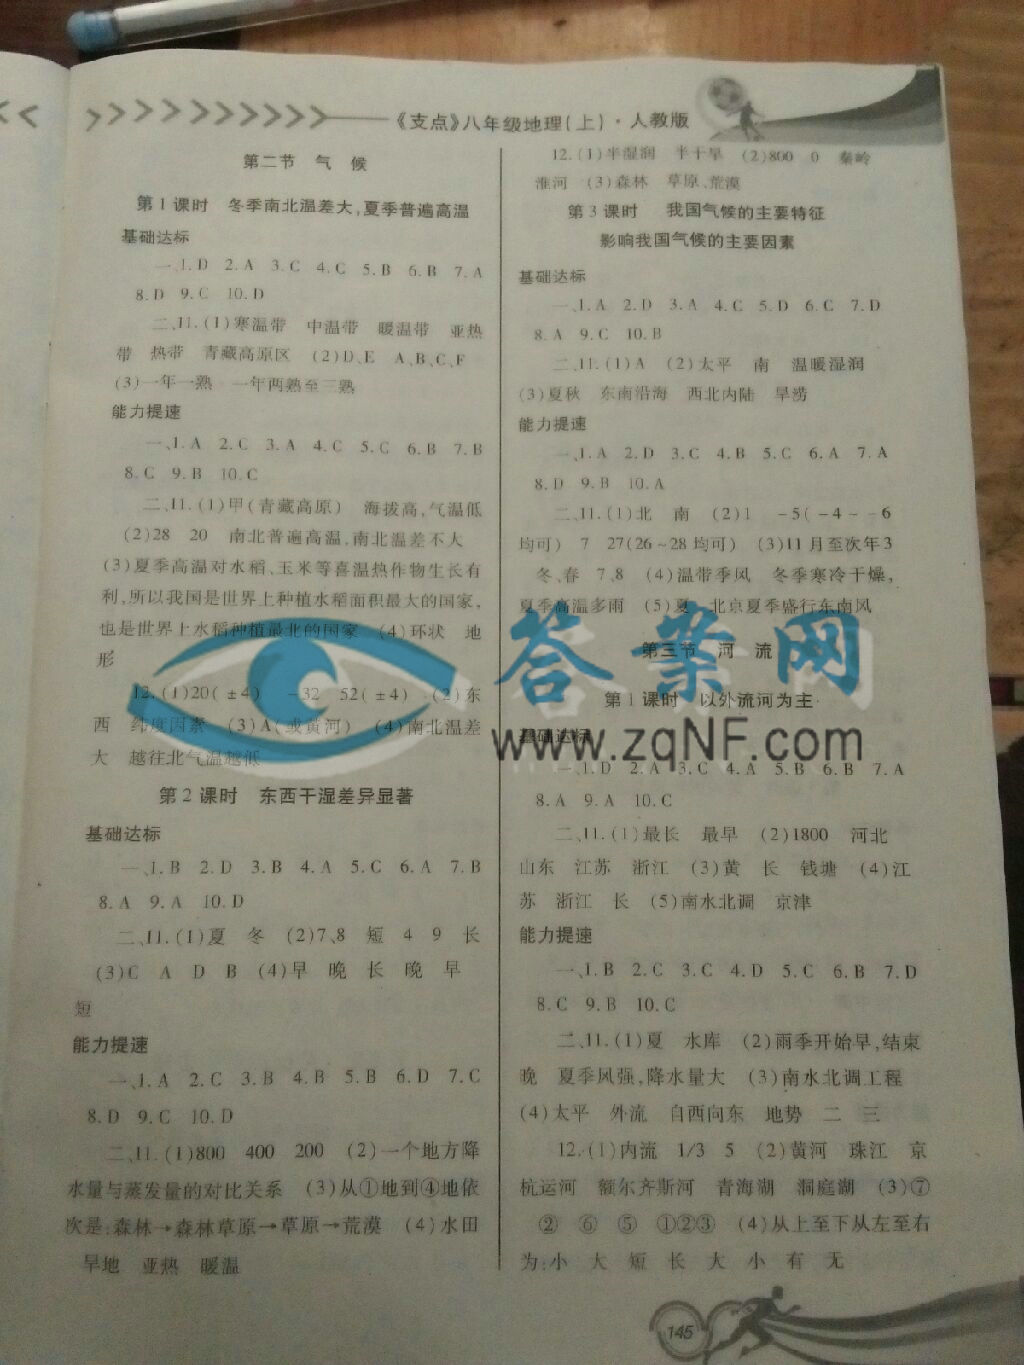 《支点》八年级地理(上)·人教版
第二节 气 候
第1课时 冬季南北温差大,夏季普遍高温
基础达标
一、1.D 2.A 3.C 4.C 5.B 6.B 7.A
8.D 9.C 10.D
二、11.(1)寒温带 中温带 暖温带 亚热
带 热带 青藏高原区 (2)D、E A、B、C、F
(3)一年一熟 一年两熟至三熟
能力提速
一、1.A 2.C 3.A 4.C 5.C 6.B 7.B
8.C 9.B 10.C
二、11.(1)甲(青藏高原) 海拔高,气温低
(2)28 20 南北普遍高温,南北温差不大
(3)夏季高温对水稻、玉米等喜温热作物生长有
利,所以我国是世界上种植水稻面积最大的国家,
也是世界上水稻种植最北的国家 (4)环状 地
形
12.(1)20(±4) -32 52(±4) (2)东
西 纬度因素 (3)A(或黄河) (4)南北温差
大 越往北气温越低
第2课时 东西干湿差异显著
基础达标
一、1.B 2.D 3.B 4.A 5.C 6.A 7.B
8.A 9.A 10.D
二、11.(1)夏 冬 (2)7、8 短 4 9 长
(3)C A D B (4)早 晚 长 晚 早
短
能力提速
一、1.A 2.C 3.B 4.B 5.B 6.D 7.C
8.D 9.C 10.D
二、11.(1)800 400 200 (2)一个地方降
水量与蒸发量的对比关系 (3)从①地到④地依
次是:森林→森林草原→草原→荒漠 (4)水田
旱地 亚热 暖温
12.(1)半湿润 半干旱 (2)800 0 秦岭
淮河 (3)森林 草原、荒漠
第3课时 我国气候的主要特征
影响我国气候的主要因素
基础达标
一、1.A 2.D 3.A 4.C 5.D 6.C 7.D
8.A 9.C 10.B
二、11.(1)A (2)太平 南 温暖湿润
(3)夏秋 东南沿海 西北内陆 旱涝
能力提速
一、1.A 2.D 3.C 4.B 5.C 6.A 7.A
8.D 9.B 10.A
二、11.(1)北 南 (2)1 -5(-4~-6
均可) 7 27(26~28均可) (3)11月至次年3
冬、春 7、8 (4)温带季风 冬季寒冷干燥,
夏季高温多雨 (5)夏 北京夏季盛行东南风
第三节 河 流
第1课时 以外流河为主
基础达标
一、1.D 2.A 3.C 4.A 5.B 6.B 7.A
8.A 9.A 10.C
二、11.(1)最长 最早 (2)1800 河北
山东 江苏 浙江 (3)黄 长 钱塘 (4)江
苏 浙江 长 (5)南水北调 京津
能力提速
一、1.B 2.C 3.C 4.D 5.C 6.B 7.D
8.C 9.B 10.C
二、11.(1)夏 水库 (2)雨季开始早,结束
晚 夏季风强,降水量大 (3)南水北调工程
(4)太平 外流 自西向东 地势 二 三
12.(1)内流 1/3 5 (2)黄河 珠江 京
杭运河 额尔齐斯河 青海湖 洞庭湖 (3)⑦
② ⑥ ⑤ ①②③ (4)从上至下从左至右
为:小 大 短 长 大 小 有 无
145
答案网
www.zqNF.com